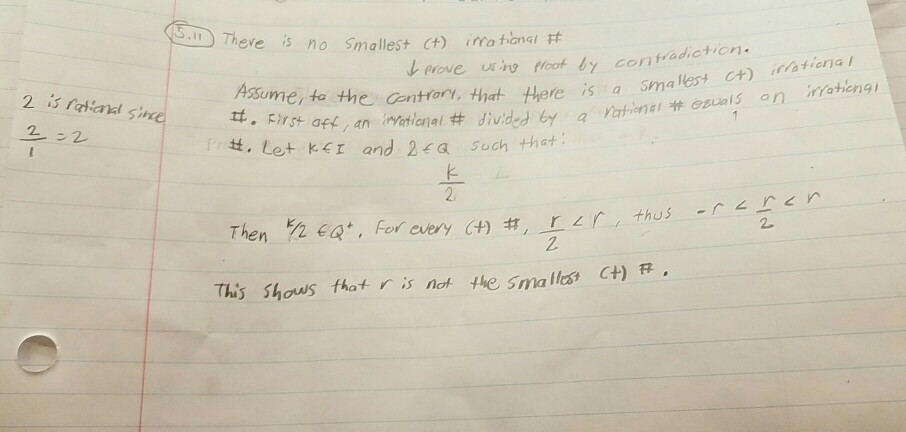 5.11 There is no smallest (+) irrational #
↓ prove using proof by contradiction.
Assume, to the contrary, that there is a smallest (+) irrational
#. First off, an irrational # divided by a rational # equals an irrational
#. Let K ∈ I and 2 ∈ Q such that:
K
2
Then K/2 ∈ Q⁺. For every (+) #, r/2 < r, thus -r < r/2 < r
This shows that r is not the smallest (+) #.
2 is rational since
2/1 = 2